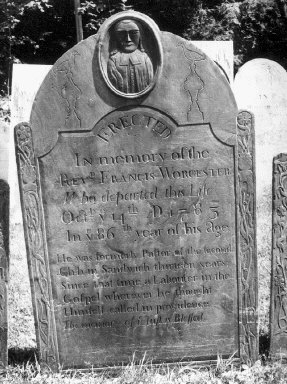 ERECTED
In memory of the
Revd. FRANCIS WORCESTER
departed this Life
Octr. ye 14th A.D. 1783
In ye 86th year of his age
He was formerly Pastor of the second
Chh. in Sandwich thirteen years
Since that time a Labourer in the
Gospel wherein he thought
Himself called in providence
The memory of ye Just is Blessed